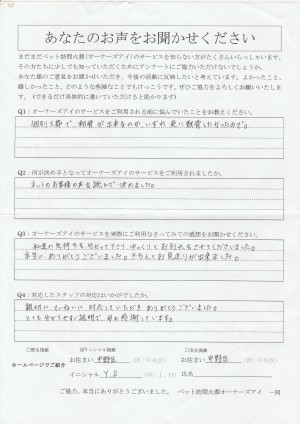 あなたのお声をお聞かせください
まだまだペット訪問火葬(オーナーズアイ)のサービスを知らない方がたくさんいらっしゃいます。
その方たちに少しでも知っていただくためにアンケートにご協力いただけないでしょうか。
あなた様のご意見をお聞かせいただき、今後の活動に反映したいと考えています。よかったこと、
嬉しかったこと、どのような些細なことでもけっこうです。ぜひご協力をよろしくお願いいたしま
す。(できるだけ具体的に書いていただけると助かります)
Q1:オーナーズアイのサービスをご利用される前に悩んでいたことをお教えください。
個別火葬で、納骨が出来るのか、いずれ、楽に散骨したかったので。
Q2:何が決め手となってオーナーズアイのサービスをご利用されましたか。
ネットのお客様の声を読んで決めました。
Q3:オーナーズアイのサービスを実際にご利用なさってみての感想をお聞かせください。
私達の気持ちを分かって下さり、ゆっくりとお別れをさせてくださいました。
本当にありがとうございました。きちんとお見送りが出来ました。
Q4:対応したスタッフの対応はいかがでしたか。
親切に、ていねいに対応していただき、ありがとうございました。
とても分かりやすい説明で、母も感謝しています。
□匿名掲載
イニシャル掲載
□実名掲載
お住まい 中野区 (例:中央区)
お住まい 中野区 (例:中央区)
ホームページでご紹介
イニシャル Y.S (例:J.H)
氏名
ご協力、本当にありがとうございました。 ペット訪問火葬オーナーズアイ 一同